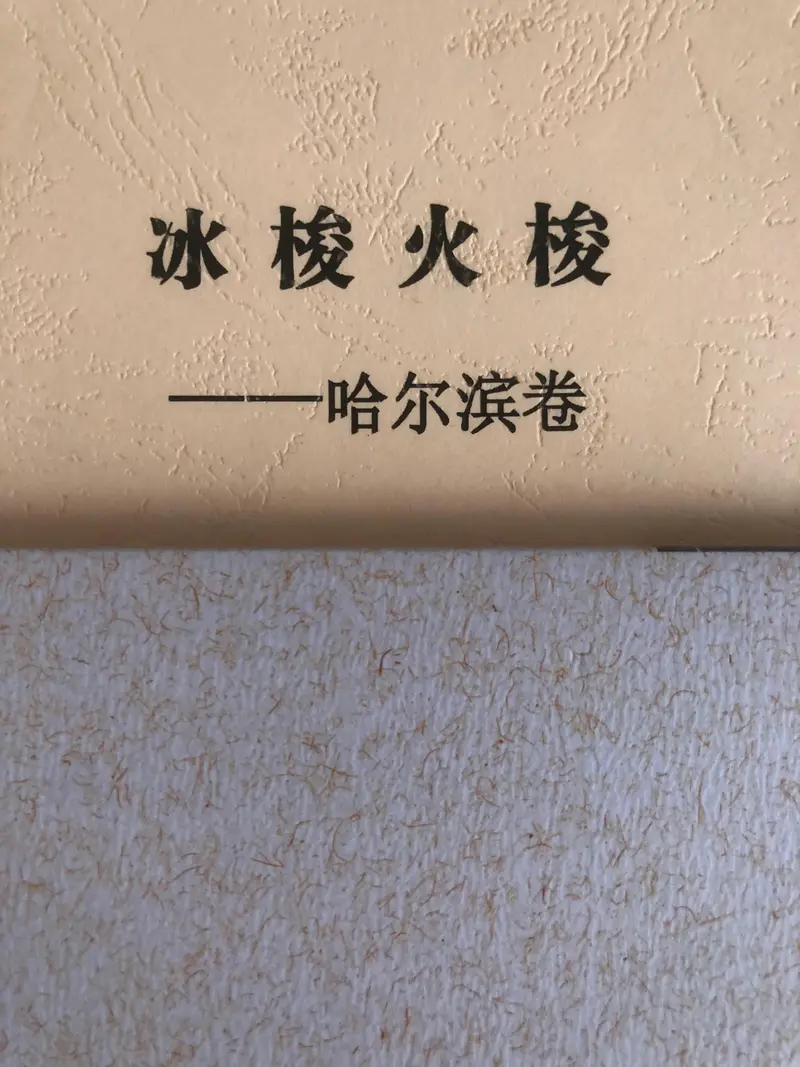 冰梭火梭
——哈尔滨卷